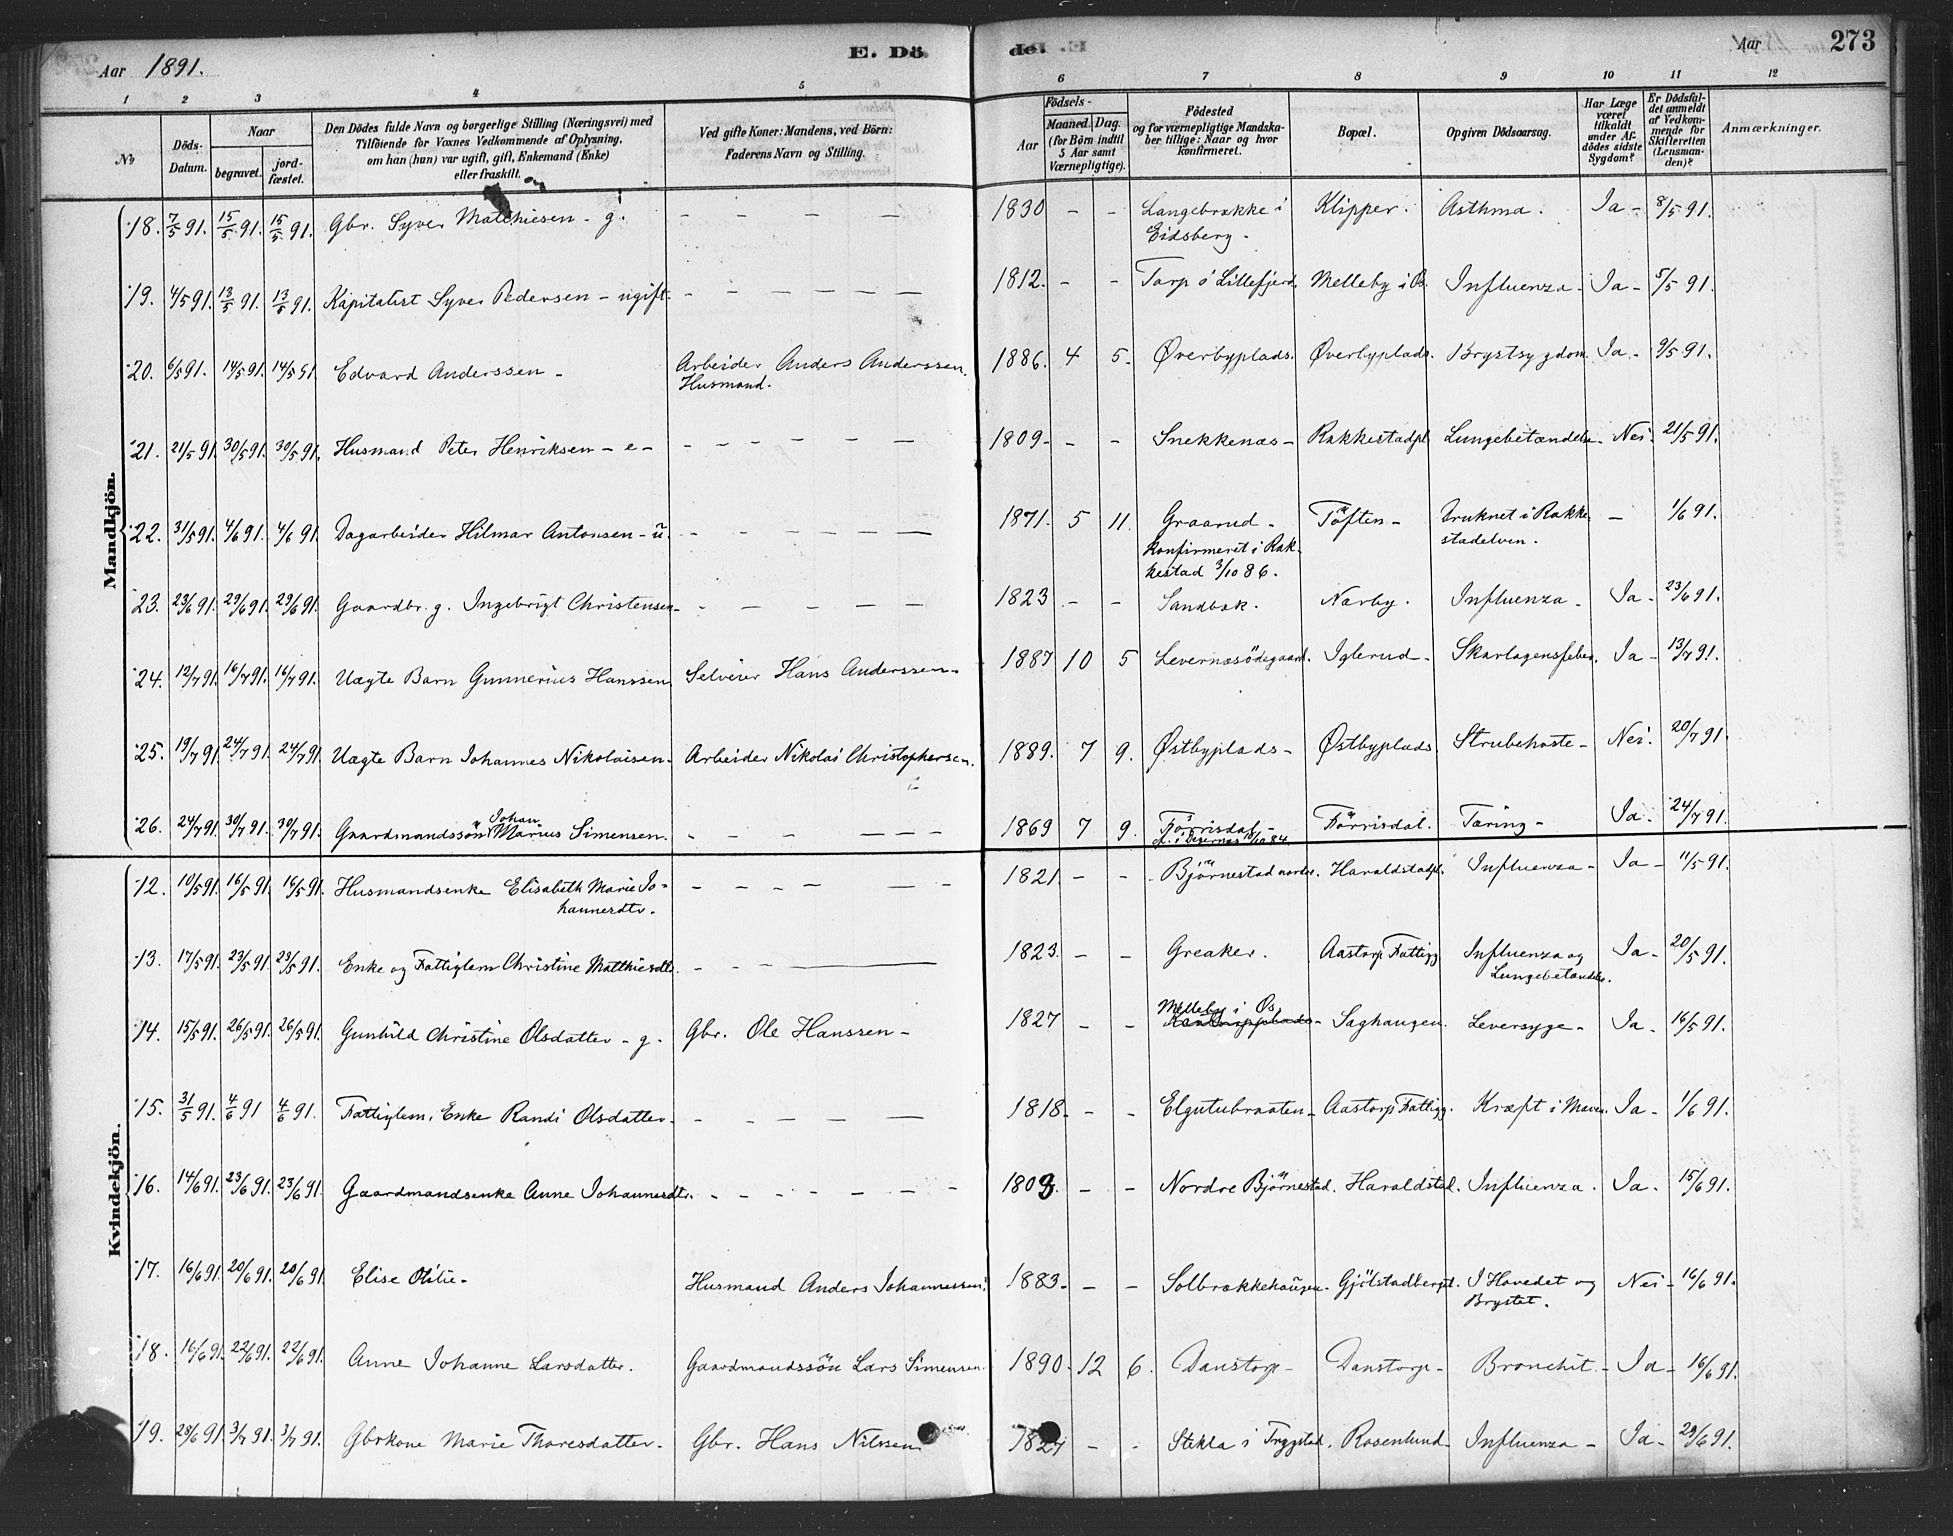 Aar 1891. E. Dö de. Aar 273
1 2 3 4 5 6 7 8 9 10 11 12
No Döds-Datum. Naar begravet. jord-fæstet. Den Dödes fulde Navn og borgerlige Stilling (Næringsvei) med Tilföiende for Voxnes Vedkommende af Oplysning, om han (hun) var ugift, gift, Enkemand (Enke) eller fraskilt. Ved gifte Koner: Mandens, ved Börn: Faderens Navn og Stilling. Födsels- Aar Maaned. Dag. (for Börn indtil 5 Aar samt Værnepligtige). Födested og for værnepligtige Mandska-ber tillige: Naar og hvor konfirmeret. Bopæl. Opgiven Dödsaarsag. Har Læge været tilkaldt under Af-dödes sidste Sygdom? Er Dödsfal-det anmeldt af Vedkom-mende for Skifteretten (Lensman-den)? Anmærkninger.
Mandkjön.
18. 7/5 91. 15/5 91. 15/5 91. Gbr. Syver Mathiesen - g. 1830 - - Langebrække i Klipper. Asthma. Ja - 8/5 91.
Eidsberg -
19. 4/5 91. 13/5 91. 13/5 91. Kapitalist Syver Pedersen - ugift. 1812. - - Torp i Lillefjerd. Melleby i Øs. Influenza - Ja - 5/5 91.
20. 6/5 91. 14/5 91. 14/5 91 Edvard Anderssen - Arbeider Anders Anderssen. 1886. 4 5. Øverbyplads. Øverbyplads. Brystsygdom. Ja - 9/5 91.
Husmand.
21. 21/5 91. 30/5 91. 30/5 91. Husmand Peter Henriksen - e - 1809 - - - Snekkenæs - Rakkestadpl. Lungebetændelse - Nei. 21/5 91.
22. 31/5 91. 4/6 91. 4/6 91. Dagarbeider Hilmar Antonsen - u. 1871. 5 11. Graarud - Töften - Druknet i Rakke- - 1/6 91.
Konfirmeret i Rak- stadelven.
kestad 3/10 86.
23. 23/6 91. 29/6 91. 29/6 91. Gaardbr. g. Ingebrigt Christensen - 1823 - - Sandbæk. Nærby. Influenza - Ja - 23/6 91.
24. 12/7 91. 16/7 91. 16/7 91. Uægte Barn Gunnerius Hanssen Selveier Hans Anderssen - 1887 10 5 Levernæsödegaard. Iglerud - Skarlagensfeber. Ja - 13/7 91.
25. 19/7 91. 24/7 91. 24/7 91. Uægte Barn Johannes Nikolaisen. Arbeider Nikolai Christophersen. 1889. 7 9. Østbyplads - Østbyplads. Strubehoste - Nei. 20/7 91.
Johan
26. 24/7 91. 30/7 91. 30/7 91. Gaardmandssön Marius Simensen. 1869 7 9. Förrisdal - Förrisdal. Tæring - Ja. 24/7 91.
i Degernes 10/10 84.
Kvindekjön.
12. 10/5 91. 16/5 91. 16/5 91. Husmandsenke Elisabeth Marie Jo- 1821. - - Björnestad nordre. Haraldstadpl. Influenza - Ja - 11/5 91.
hannesdtr.
13. 17/5 91. 23/5 91. 23/5 91. Enke og Fattiglem Christine Matthiesdtr. 1823. - - Greaker. Aastorp Fattigg. Influenza og Ja - 20/5 91.
Lungebetændelse.
Melleby i Øs
14. 15/5 91. 26/5 91. 26/5 91. Gunhild Christine Olsdatter - g. Gbr. Ole Hanssen - 1827 - - Saghaugen. Leversyge - Ja - 16/5 91.
15. 31/5 91. 4/6 91 4/6 91. Fattiglem, Enke Randi Olsdatter. 1818 - - - Elgutubraaten - Aastorp Fattigg. Kræft i Maven. Ja - 1/6 91.
16. 14/6 91. 23/6 91. 23/6 91. Gaardmandsenke Anne Johannesdtr. 1803. - - Nordre Björnestad. Haraldstad. Influenza. Ja. 15/6 91.
17. 16/6 91. 20/6 91. 20/6 91. Elise Otilie - Husmand Anders Johannessen. 1883. - - Solbrækkehaugen. Gjölstadbergpl. I Hovedet og Nei - 16/6 91.
Brystet.
18. 16/6 91. 22/6 91. 22/6 91. Anne Johanne Larsdatter. Gaardmandssön Lars Simensen. 1890. 12 6. Danstorp - Danstorp - Bronchit - Ja - 16/6 91.
19. 28/6 91. 3/7 91. 3/7 91. Gbrkone Marie Thoresdatter. Gbr. Hans Nilssen 1824 - - Stekla i Trygstad. Rosenlund. Influenza - Ja - 29/6 91.